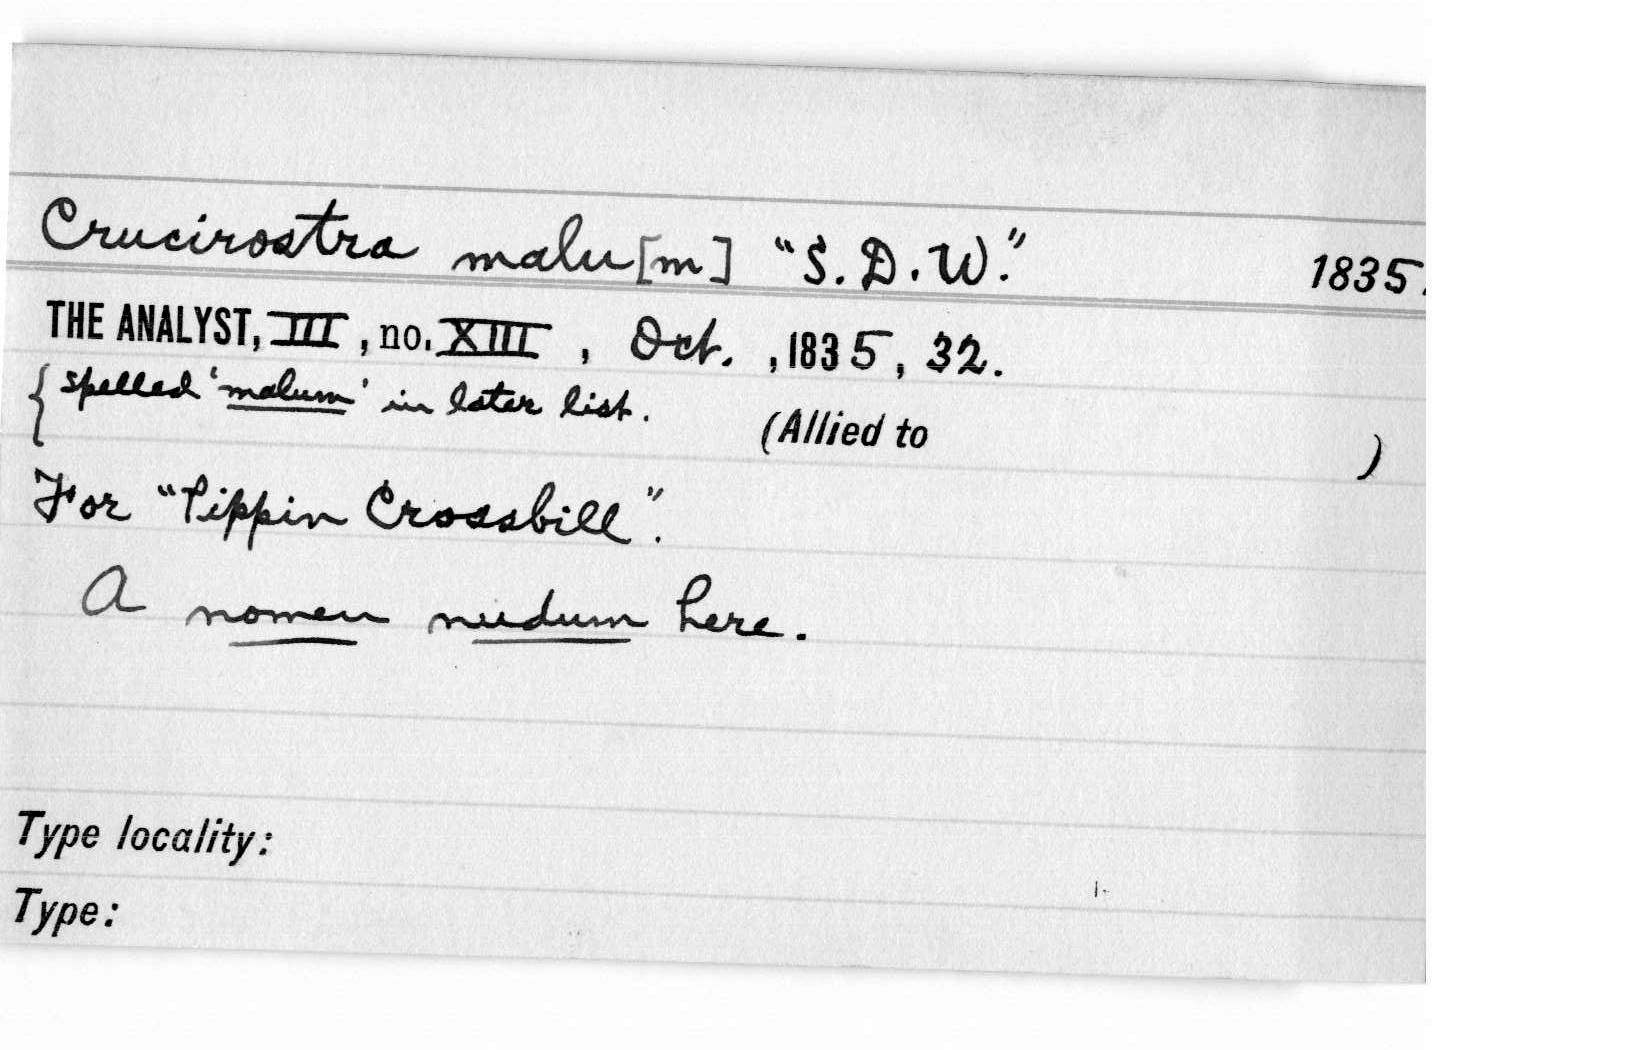 Crucirostra malu[m] "S.D.W." 1835.
THE ANALYST, III, no. XIII, Oct., 1835, 32.
{spelled 'malum' in later list.
(Allied to )
For "Pippin Crossbill".
A nomen nudum here.
Type locality:
Type: